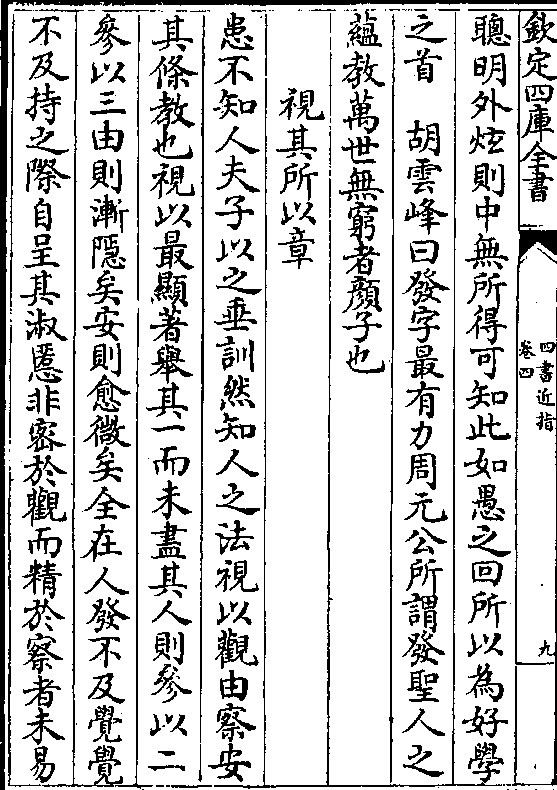 欽定四庫全書
四書近指
卷四
九
聰明外炫則中無所得可知此如愚之回所以為好學
之首　胡雲峰曰發字最有力周元公所謂發聖人之
蘊教萬世無窮者顏子也
視其所以章
患不知人夫子以之垂訓然知人之法視以觀由察安
其條教也視以最顯著舉其一而未盡其人則參以二
參以三由則漸隱矣安則愈微矣全在人發不及覺覺
不及持之際自呈其淑慝非密於觀而精於察者未易